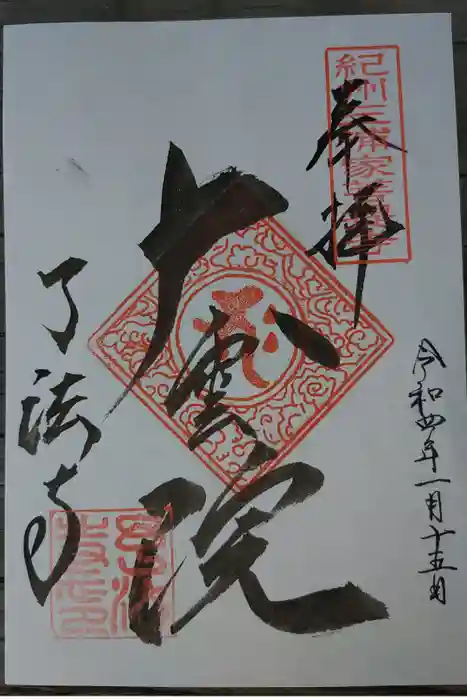 奉拝
紀州三浦家菩提寺
令和四年一月十五日
大雲院
了法寺